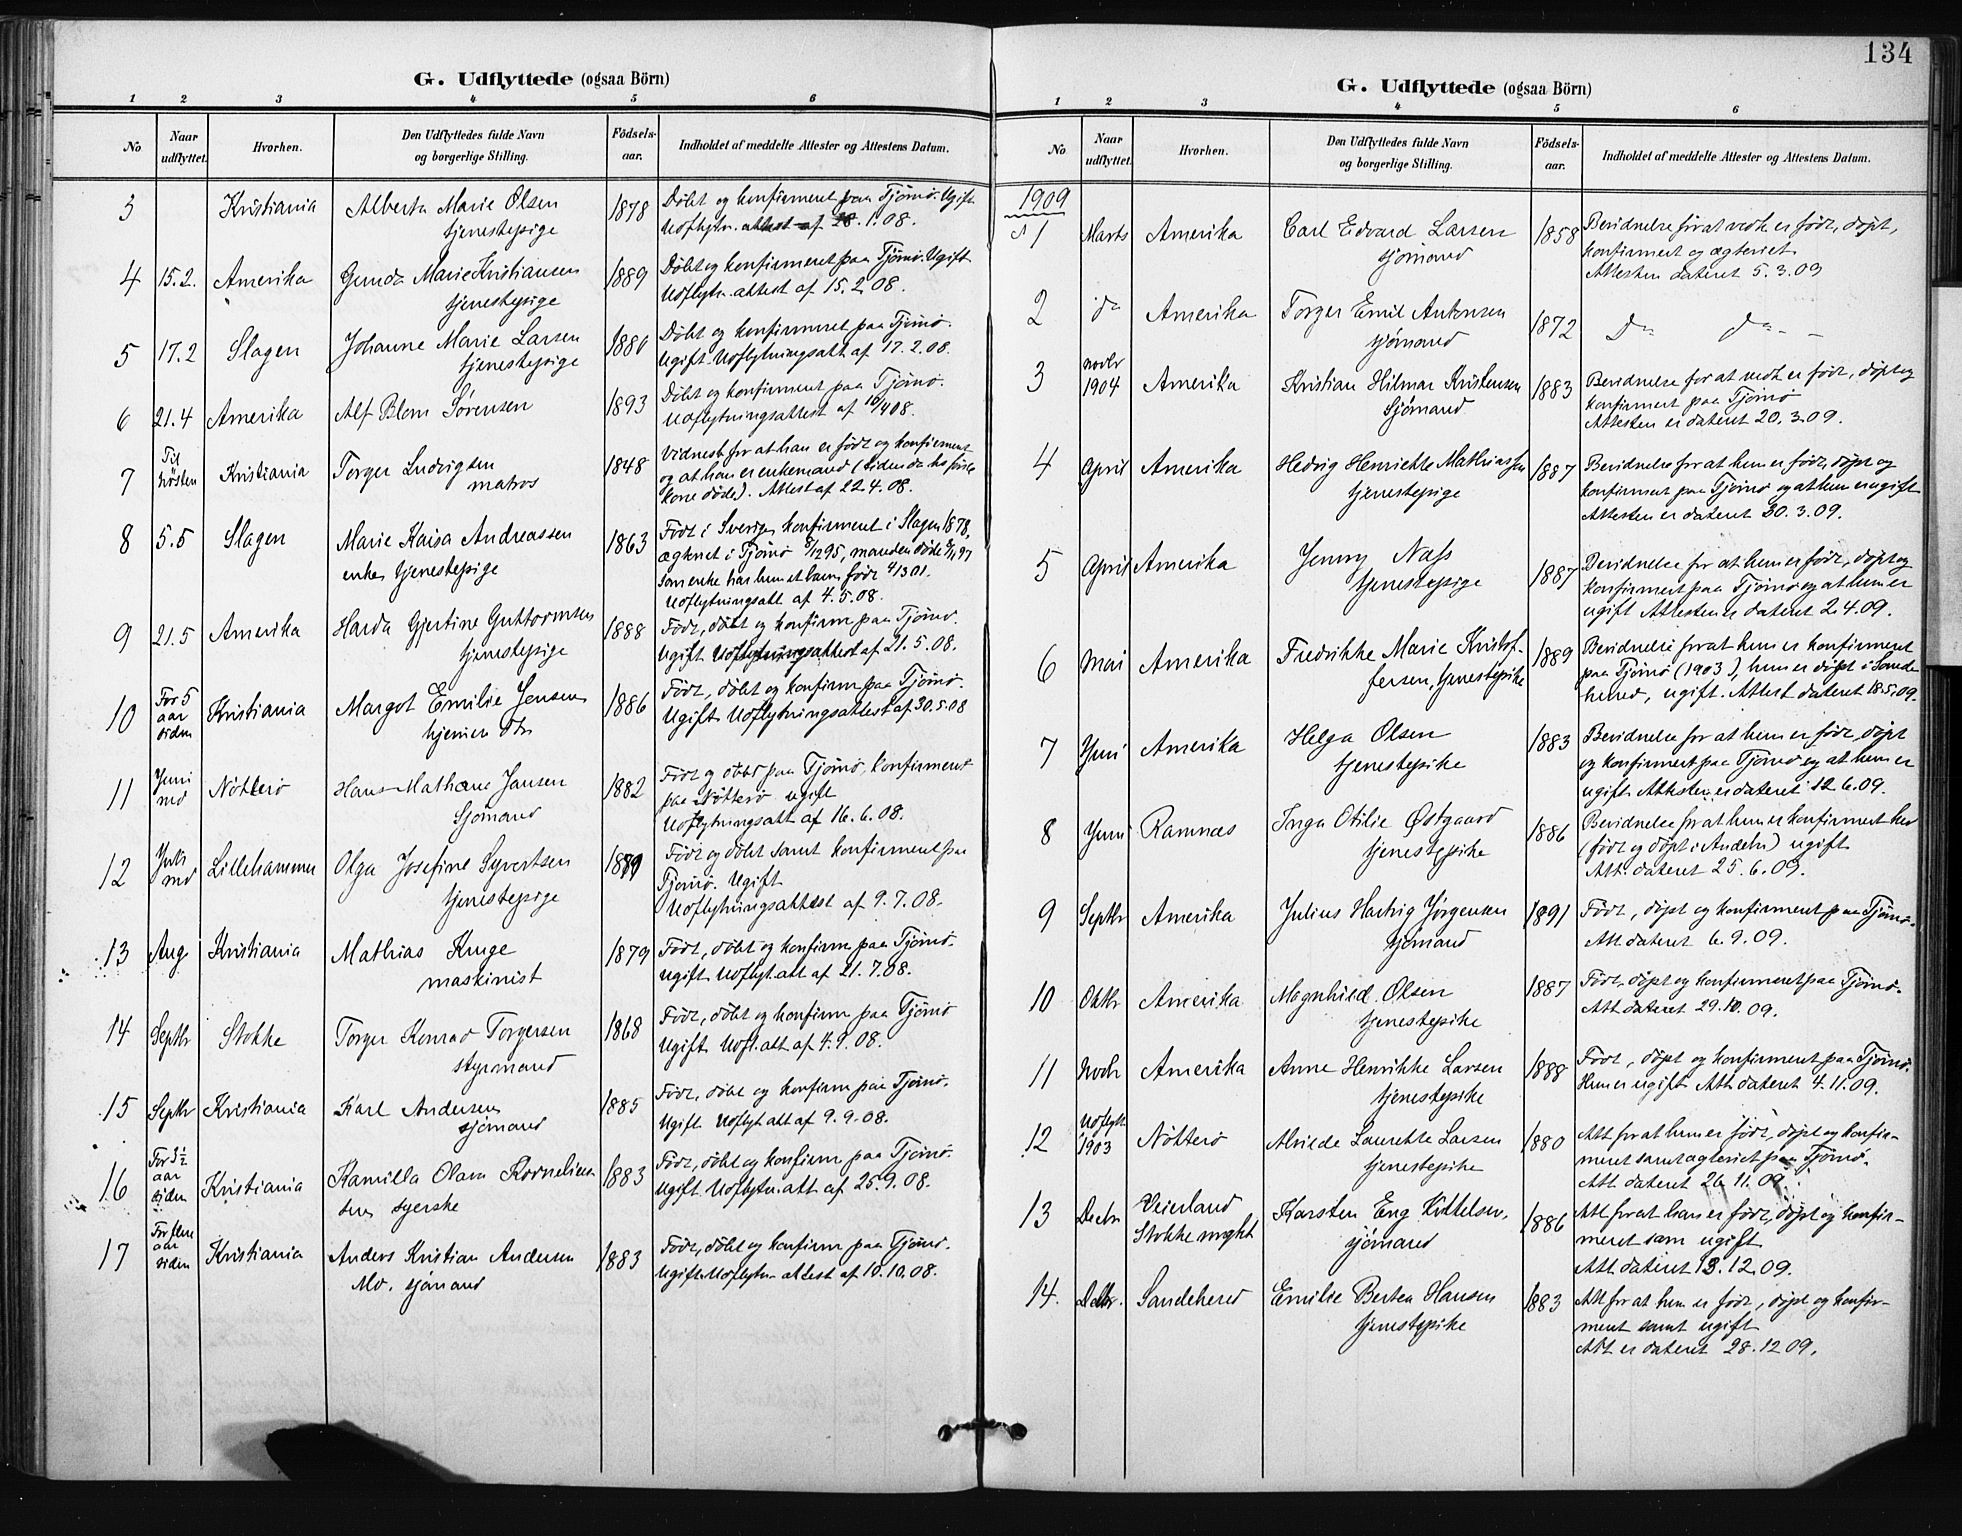 G. Udflyttede (ogsaa Börn)
1 2 3 4 5 6
No
Naar udflyttet.
Hvorhen.
Den Udflyttedes fulde Navn og borgerlige Stilling.
Födsels-aar.
Indholdet af meddelte Attester og Attestens Datum.
3 Kristiania Alberta Marie Olsen 1878 Døbt og konfirmeret paa Tjömö. Ugift
tjenestepige Udflytn. attest af 28.1.08.
4 15.2. Amerika Gunda Marie Kristiansen 1889 Døbt og konfirmeret paa Tjömö. Ugift
tjenestepige Udflytn. attest af 15.2.08.
5 17.2 Slagen Johanne Marie Larsen 1880 Døbt og konfirmeret paa Tjömö.
tjenestepige Ugift. Udflytningsatt af 17.2.08.
6 21.4 Amerika Alf Blom Sørensen 1893 Døbt og konfirmeret paa Tjömö.
Udflytningsattest af 10/4 08.
7 Til høsten Kristiania Torger Ludvigsen 1848 Vidnesb for at han er født og konfirmeret
matros og at han er enkemand (siden da
kone døde). Attest af 22.4.08.
8 5.5 Slagen Marie Kaisa Andreassen 1863 Født i Sverige, konfirmeret i Slagen 1878,
enke, tjenestepige ægteviet i Tjömö 8/12 95, manden døde
Som enke har hun et barn født 4/3 01.
Udflytningsatt af 4.5.08.
9 21.5 Amerika Harda Gjertine Guttormsen 1888 Født, døbt og konfirm paa Tjömö.
tjenestepige Ugift. Udflytningsattest af 21.5.08.
10 For 5 aar siden Kristiania Margot Emilie Jensen 1886 Født, døbt og konfirm paa Tjömö.
hjemmev. Dtr Ugift. Udflytningsattest af 30.5.08
11 Juni md Nötterö Hans Mathæus Jansen 1882 Født og døbt paa Tjömö, konfirmeret
Sjömand paa Nötterö ugift
Udflytningsatt af 16.6.08.
12 Juli md Lillehammer Olga Josefine Syvertsen Født og døbt samt konfirmeret paa
tjenestepige Tjömö. Ugift
Udflytningsattest af 9.7.08.
13 Aug Kristiania Mathias Kruge 1879 Født, døbt og konfirm paa Tjömö.
maskinist Ugift. Udflyt. att af 21.7.08.
14 Septbr Stokke Torger Konrad Torgersen 1868 Født, døbt og konfirm paa Tjömö
styrmand Ugift. Udfl. att af 4.9.08.
15 Septbr Kristiania Karl Andersen 1885 Født, døbt og konfirm paa Tjömö.
sjömand Ugift. Udflyt att af 9.9.08.
16 For 3½ aar siden Kristiania Kamilla Olava Kornelius- 1883 Født, døbt og konfirm paa Tjömö.
sen syerske Ugift. Udflytn. att af 25.9.08.
17 For flere aar siden Kristiania Anders Kristian Andersen 1883 Født, døbt og konfirm paa Tjömö.
Mo. sjömand Ugift. Udflytn attest af 10.10.08.
134
G. Udflyttede (ogsaa Börn)
1 2 3 4 5 6
No
Naar udflyttet.
Hvorhen.
Den Udflyttedes fulde Navn og borgerlige Stilling.
Födsels-aar.
Indholdet af meddelte Attester og Attestens Datum.
1909
1 Marts Amerika Carl Edvard Larsen 1858 Bevidnelse for at vedk er født, döpt,
sjömand konfirmert og ægteviet
Attesten dateret 5.3.09
2 do Amerika Torger Emil Antonsen 1872 do do
sjömand
3 novbr 1904 Amerika Kristian Hilmar Kristensen 1883 Bevidnelse for at vedk er født, döpt og
Sjömand konfirmert paa Tjömö
Attesten er dateret 20.3.09.
4 April Amerika Hedvig Henriette Mathiassen 1887 Bevidnelse for at hun er født, döpt og
tjenestepige konfirmert paa Tjömö og at hun er ugift
Attesten er dateret 30.3.09.
5 April Amerika Jenny Næss 1887 Bevidnelse for at hun er født, döpt og
tjenestepige konfirmert paa Tjömö og at hun er
ugift Attesten er dateret 2.4.09.
6 Mai Amerika Fredrikke Marie Kristof- 1889 Bevidnelse for at hun er konfirmeret
fersen, tjenestepike paa Tjömö (1903), hun er döpt i Sande
herred, ugift. Attest dateret 18.5.09.
7 Juni Amerika Helga Olsen 1883 Bevidnelse for at hun er født, döpt
tjenestepike og konfirmert paa Tjömö og at hun er
ugift. Attesten er dateret 12.6.09.
8 Juni Ramnæs Inga Otilie Østgaard 1886 Bevidnelse for at hun er konfirmert her
tjenestepike (født og döpt i Andebu) ugift
Att. dateret 25.6.09.
9 Septbr Amerika Julius Hartvig Jørgensen 1891 Født, döpt og konfirmeret paa Tjömö.
sjömand Att dateret 6.9.09.
10 Oktbr Amerika Magnhild Olsen 1887 Født, döpt og konfirmeret paa Tjömö.
tjenestepike Att dateret 29.10.09.
11 Novbr Amerika Anne Henrikke Larsen 1888 Født, döpt og konfirmeret paa Tjömö.
tjenestepike Hun er ugift Att dateret 4.11.09.
12 Udflytt 1903 Nötterö Alvilde Laurette Larsen 1880 Att for at hun er født, döpt og konfir-
tjenestepike meret samt ægteviet paa Tjömö.
Att dateret 26.11.09.
13 Decbr Veierland Karsten Eng Kittelsen, 1886 Att for at han er født, döpt og konfir-
Stokke prgld sjömand meret samt ugift
Att dateret 13.12.09.
14. Decbr. Sandeherred Emilie Bertea Hansen 1883 Att for at hun er født, döpt og konfir-
tjenestepike meret samt ugift
Att er dateret 28.12.09.